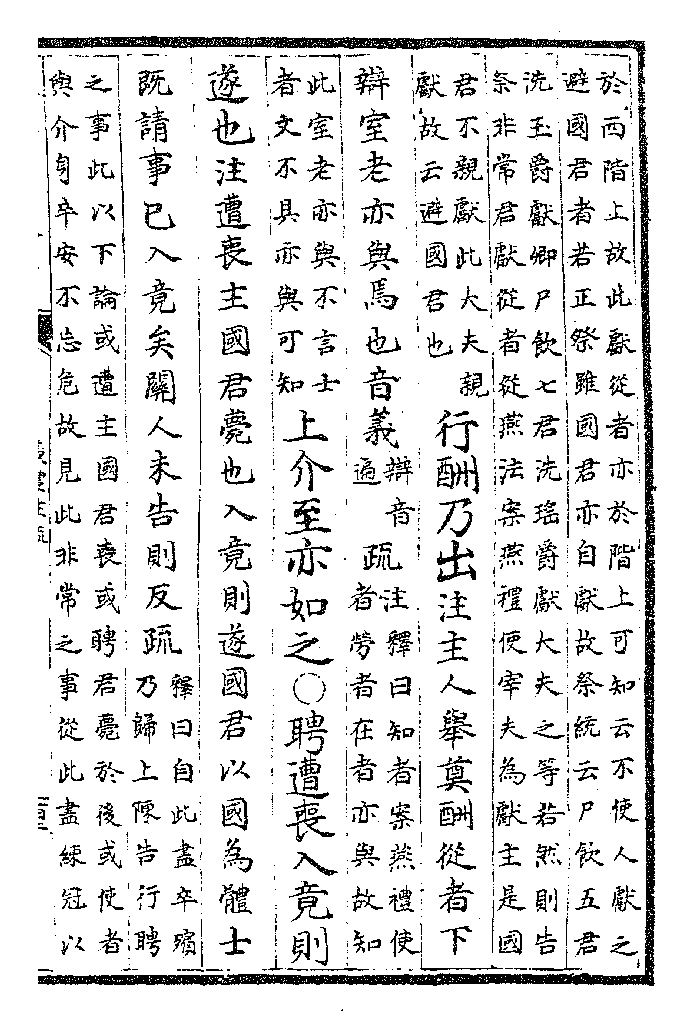 於西階上故此獻從者亦於階上可知云不使人獻之
避國君者若正祭雖國君亦自獻故祭統云尸飲五君
洗玉爵獻卿尸飲七君洗瑤爵獻大夫之等若然則告
祭非常君獻從者從燕法案燕禮使宰夫為獻主是國
君不親獻此大夫親
獻故云避國君也
行酬乃出注主人舉奠酬從者下
辯室老亦與焉也音義
辯音
遍
疏
注釋曰知者案燕禮使
者勞者在者亦與故知
此室老亦與不言士
者文不具亦與可知
上介至亦如之○聘遭喪入竟則
遂也注遭喪主國君薨也入竟則遂國君以國為體士
既請事已入竟矣關人未告則反疏
釋曰自此盡卒殯
乃歸上陳告行聘
之事此以下論或遭主國君喪或聘君薨於後或使者
與介身卒安不忘危故見此非常之事從此盡練冠以